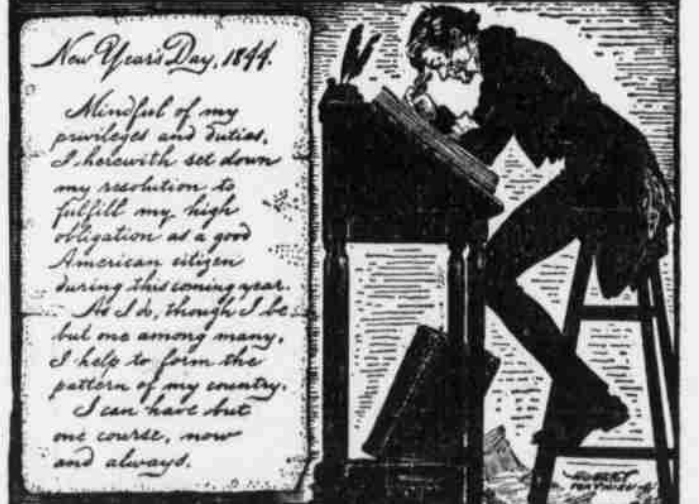 New Year's Day, 1844.
Mindful of my
privileges and duties,
I herewith set down
my resolution to
fulfill my high
obligation as a good
American citizen
during this coming year.
As I do, though I be
but one among many,
I help to form the
pattern of my country.
I can have but
one course, now
and always.